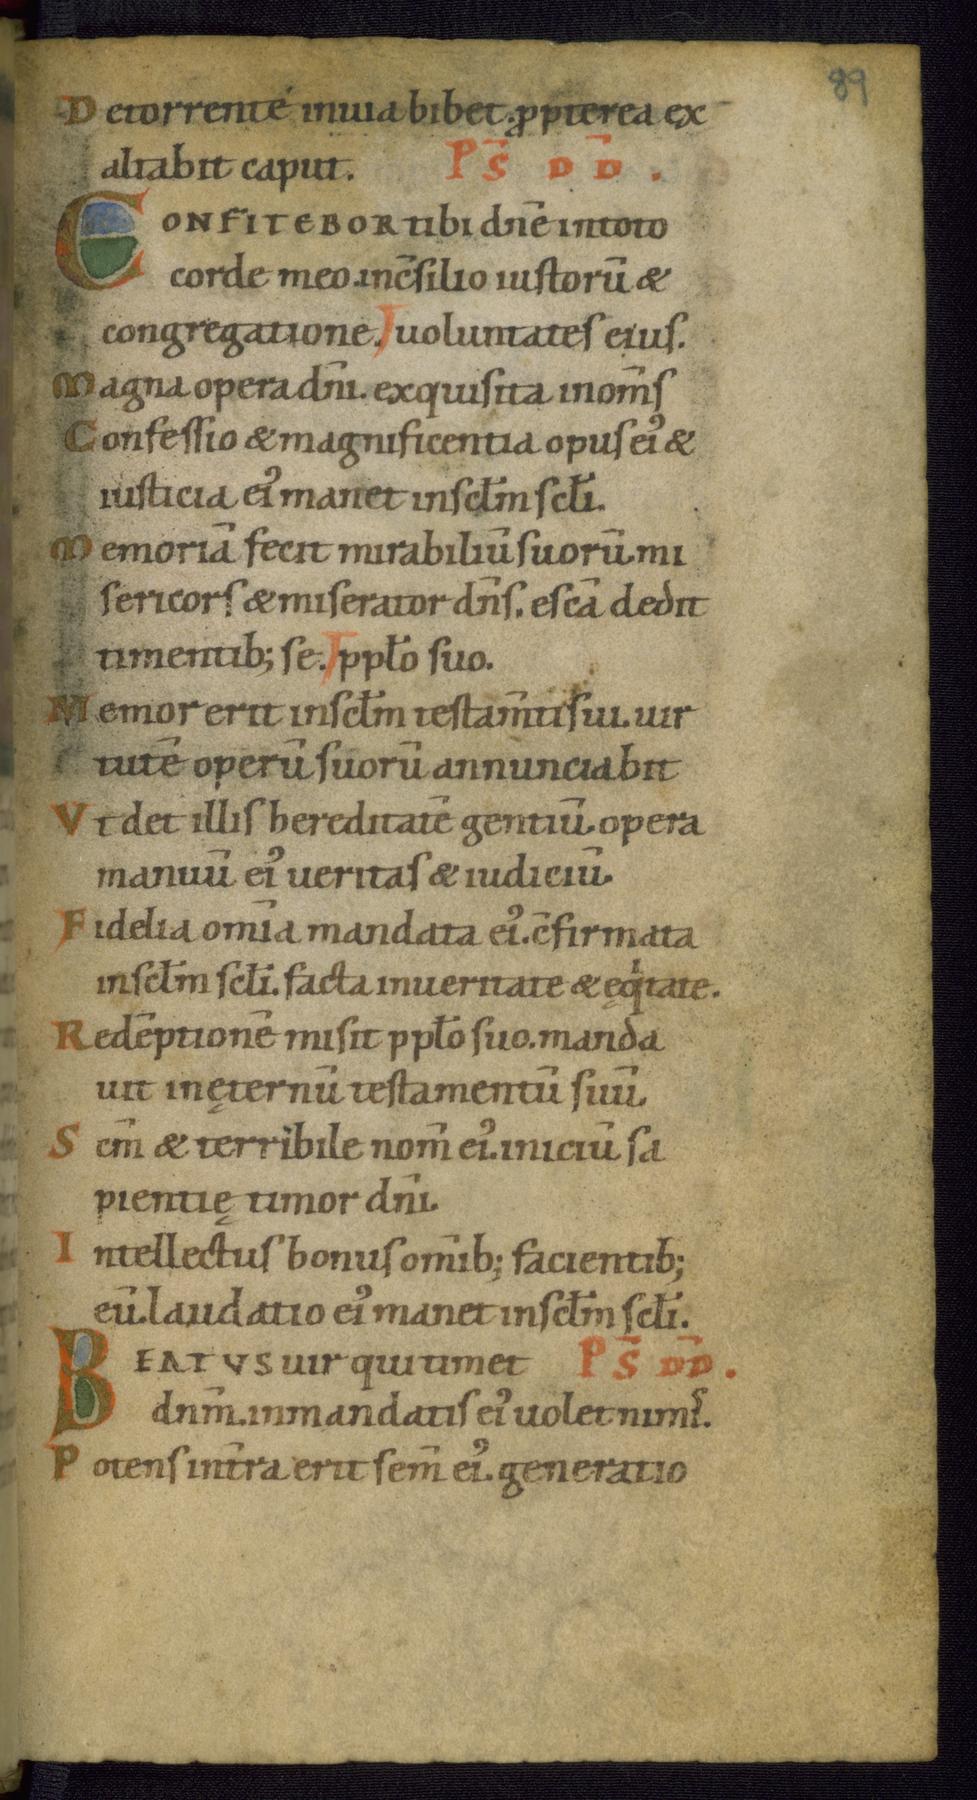 89
De torrente in uia bibet. ꝓpterea ex
altabit caput. PS̄ DD̄.
CONFITEBOR tibi dn̄e in toto
corde meo. in c̄silio iustorū &
congregatione. uoluntates eius.
Magna opera dn̄i. exquisita in om̄s
Confessio & magnificentia opus ei᾽ &
iusticia ei᾽ manet in scl̄m scl̄i.
Memoriā fecit mirabiliū suorū. mi
sericors & miserator dn̄s. escā dedit
timentib; se. ppl̄o suo.
Memor erit in scl̄m testam̄ti sui. uir
tutē operū suorū annunciabit
Vt det illis hereditatē gentiū. opera
manuū ei᾽ ueritas & iudiciū.
Fidelia om̄ia mandata ei᾽. c̄firmata
in scl̄m scl̄i. facta in ueritate & ęqͥtate.
Redēptionē misit ppl̄o suo. manda
uit in ęternū testamentū suū.
Sc̄m & terribile nom̄ ei᾽. iniciū sa
pientię timor dn̄i.
Intellectus bonus om̄ib; facientib;
eū. laudatio ei᾽ manet in scl̄m scl̄i.
BEATVS uir qui timet PS̄ DD̄.
dnm̄. in mandatis ei᾽ uolet nimͥs.
Potens in tr̄a erit sem̄ ei᾽. generatio